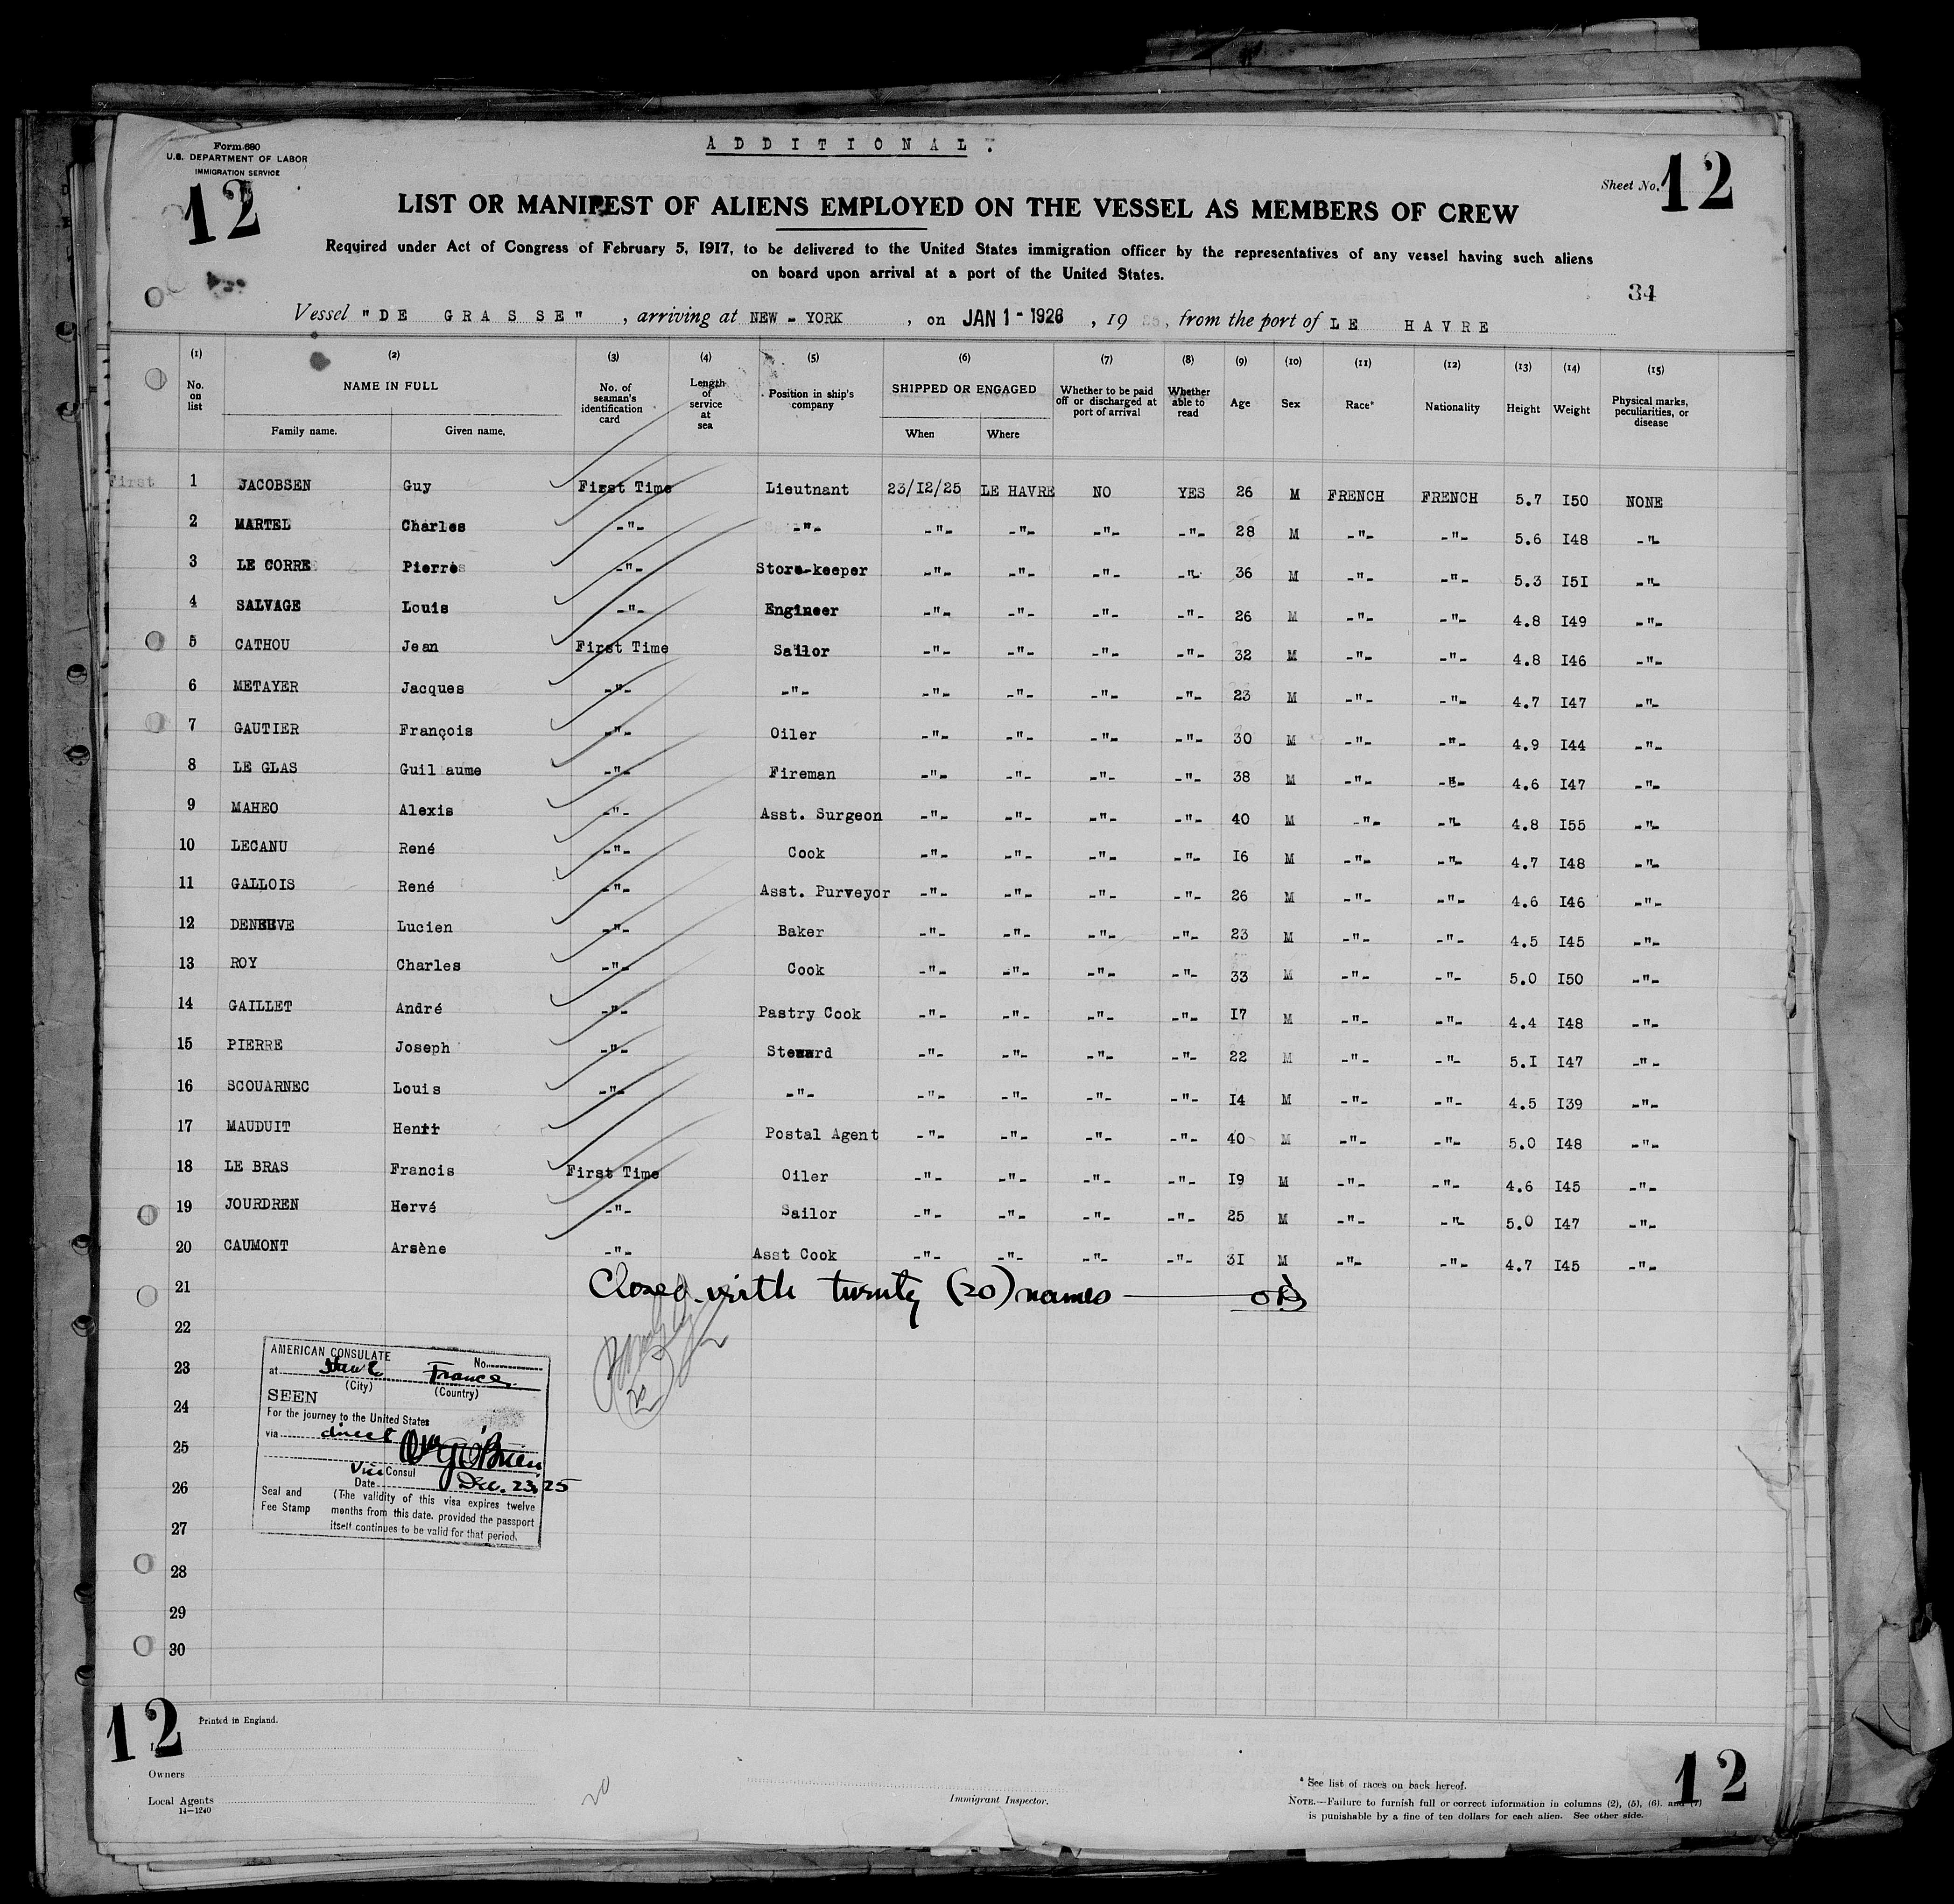 ADDITIONAL.
Form 680
U.S. DEPARTMENT OF LABOR
IMMIGRATION SERVICE
12
Sheet No. 12
LIST OR MANIFEST OF ALIENS EMPLOYED ON THE VESSEL AS MEMBERS OF CREW
Required under Act of Congress of February 5, 1917, to be delivered to the United States immigration officer by the representatives of any vessel having such aliens
on board upon arrival at a port of the United States.
34
Vessel "DE GRASSE", arriving at NEW-YORK, on JAN 1 - 1926, 19, from the port of LE HAVRE
(1) (2) (3) (4) (5) (6) (7) (8) (9) (10) (11) (12) (13) (14) (15)
No. on list NAME IN FULL Family name. Given name. No. of seaman's identification card Length of service at sea Position in ship's company SHIPPED OR ENGAGED When Where Whether to be paid off or discharged at port of arrival Whether able to read Age Sex Race* Nationality Height Weight Physical marks, peculiarities, or disease
First 1 JACOBSEN Guy First Time Lieutnant 23/12/25 LE HAVRE NO YES 26 M FRENCH FRENCH 5.7 I50 NONE
2 MARTEL Charles -"- -"- -"- -"- -"- -"- 28 M -"- -"- 5.6 I48 -"-
3 LE CORRE Pierre -"- Store-keeper -"- -"- -"- -"- 36 M -"- -"- 5.3 I5I -"-
4 SALVAGE Louis -"- Engineer -"- -"- -"- -"- 26 M -"- -"- 4.8 I49 -"-
5 CATHOU Jean First Time Sailor -"- -"- -"- -"- 32 M -"- -"- 4.8 I46 -"-
6 METAYER Jacques -"- -"- -"- -"- -"- -"- 23 M -"- -"- 4.7 I47 -"-
7 GAUTIER François -"- Oiler -"- -"- -"- -"- 30 M -"- -"- 4.9 I44 -"-
8 LE GLAS Guil aume -"- Fireman -"- -"- -"- -"- 38 M -"- -"- 4.6 I47 -"-
9 MAHEO Alexis -"- Asst. Surgeon -"- -"- -"- -"- 40 M -"- -"- 4.8 I55 -"-
10 LECANU René -"- Cook -"- -"- -"- -"- I6 M -"- -"- 4.7 I48 -"-
11 GALLOIS René -"- Asst. Purveyor -"- -"- -"- -"- 26 M -"- -"- 4.6 I46 -"-
12 DENEUVE Lucien -"- Baker -"- -"- -"- -"- 23 M -"- -"- 4.5 I45 -"-
13 ROY Charles -"- Cook -"- -"- -"- -"- 33 M -"- -"- 5.0 I50 -"-
14 GAILLET André -"- Pastry Cook -"- -"- -"- -"- I7 M -"- -"- 4.4 I48 -"-
15 PIERRE Joseph -"- Steward -"- -"- -"- -"- 22 M -"- -"- 5.I I47 -"-
16 SCOUARNEC Louis -"- -"- -"- -"- -"- -"- I4 M -"- -"- 4.5 I39 -"-
17 MAUDUIT Henri Postal Agent -"- -"- -"- -"- 40 M -"- -"- 5.0 I48 -"-
18 LE BRAS Francis First Time Oiler -"- -"- -"- -"- I9 M -"- -"- 4.6 I45 -"-
19 JOURDREN Hervé -"- Sailor -"- -"- -"- -"- 25 M -"- -"- 5.0 I47 -"-
20 CAUMONT Arsène -"- Asst Cook -"- -"- -"- -"- 3I M -"- -"- 4.7 I45 -"-
21 Closed with twenty (20) names
22
23
24
25
26
27
28
29
30
AMERICAN CONSULATE
at Havre France No.
(City) (Country)
SEEN
For the journey to the United States
via direct
O'Brien
Vice Consul
Date Dec. 23, 25
Seal and Fee Stamp
(The validity of this visa expires twelve
months from this date, provided the passport
itself continues to be valid for that period.
20
12 Printed in England.
Owners
Local Agents
14-1240
20
Immigrant Inspector.
* See list of races on back hereof.
NOTE.—Failure to furnish full or correct information in columns (2), (5), (6), and (7)
is punishable by a fine of ten dollars for each alien. See other side.
12